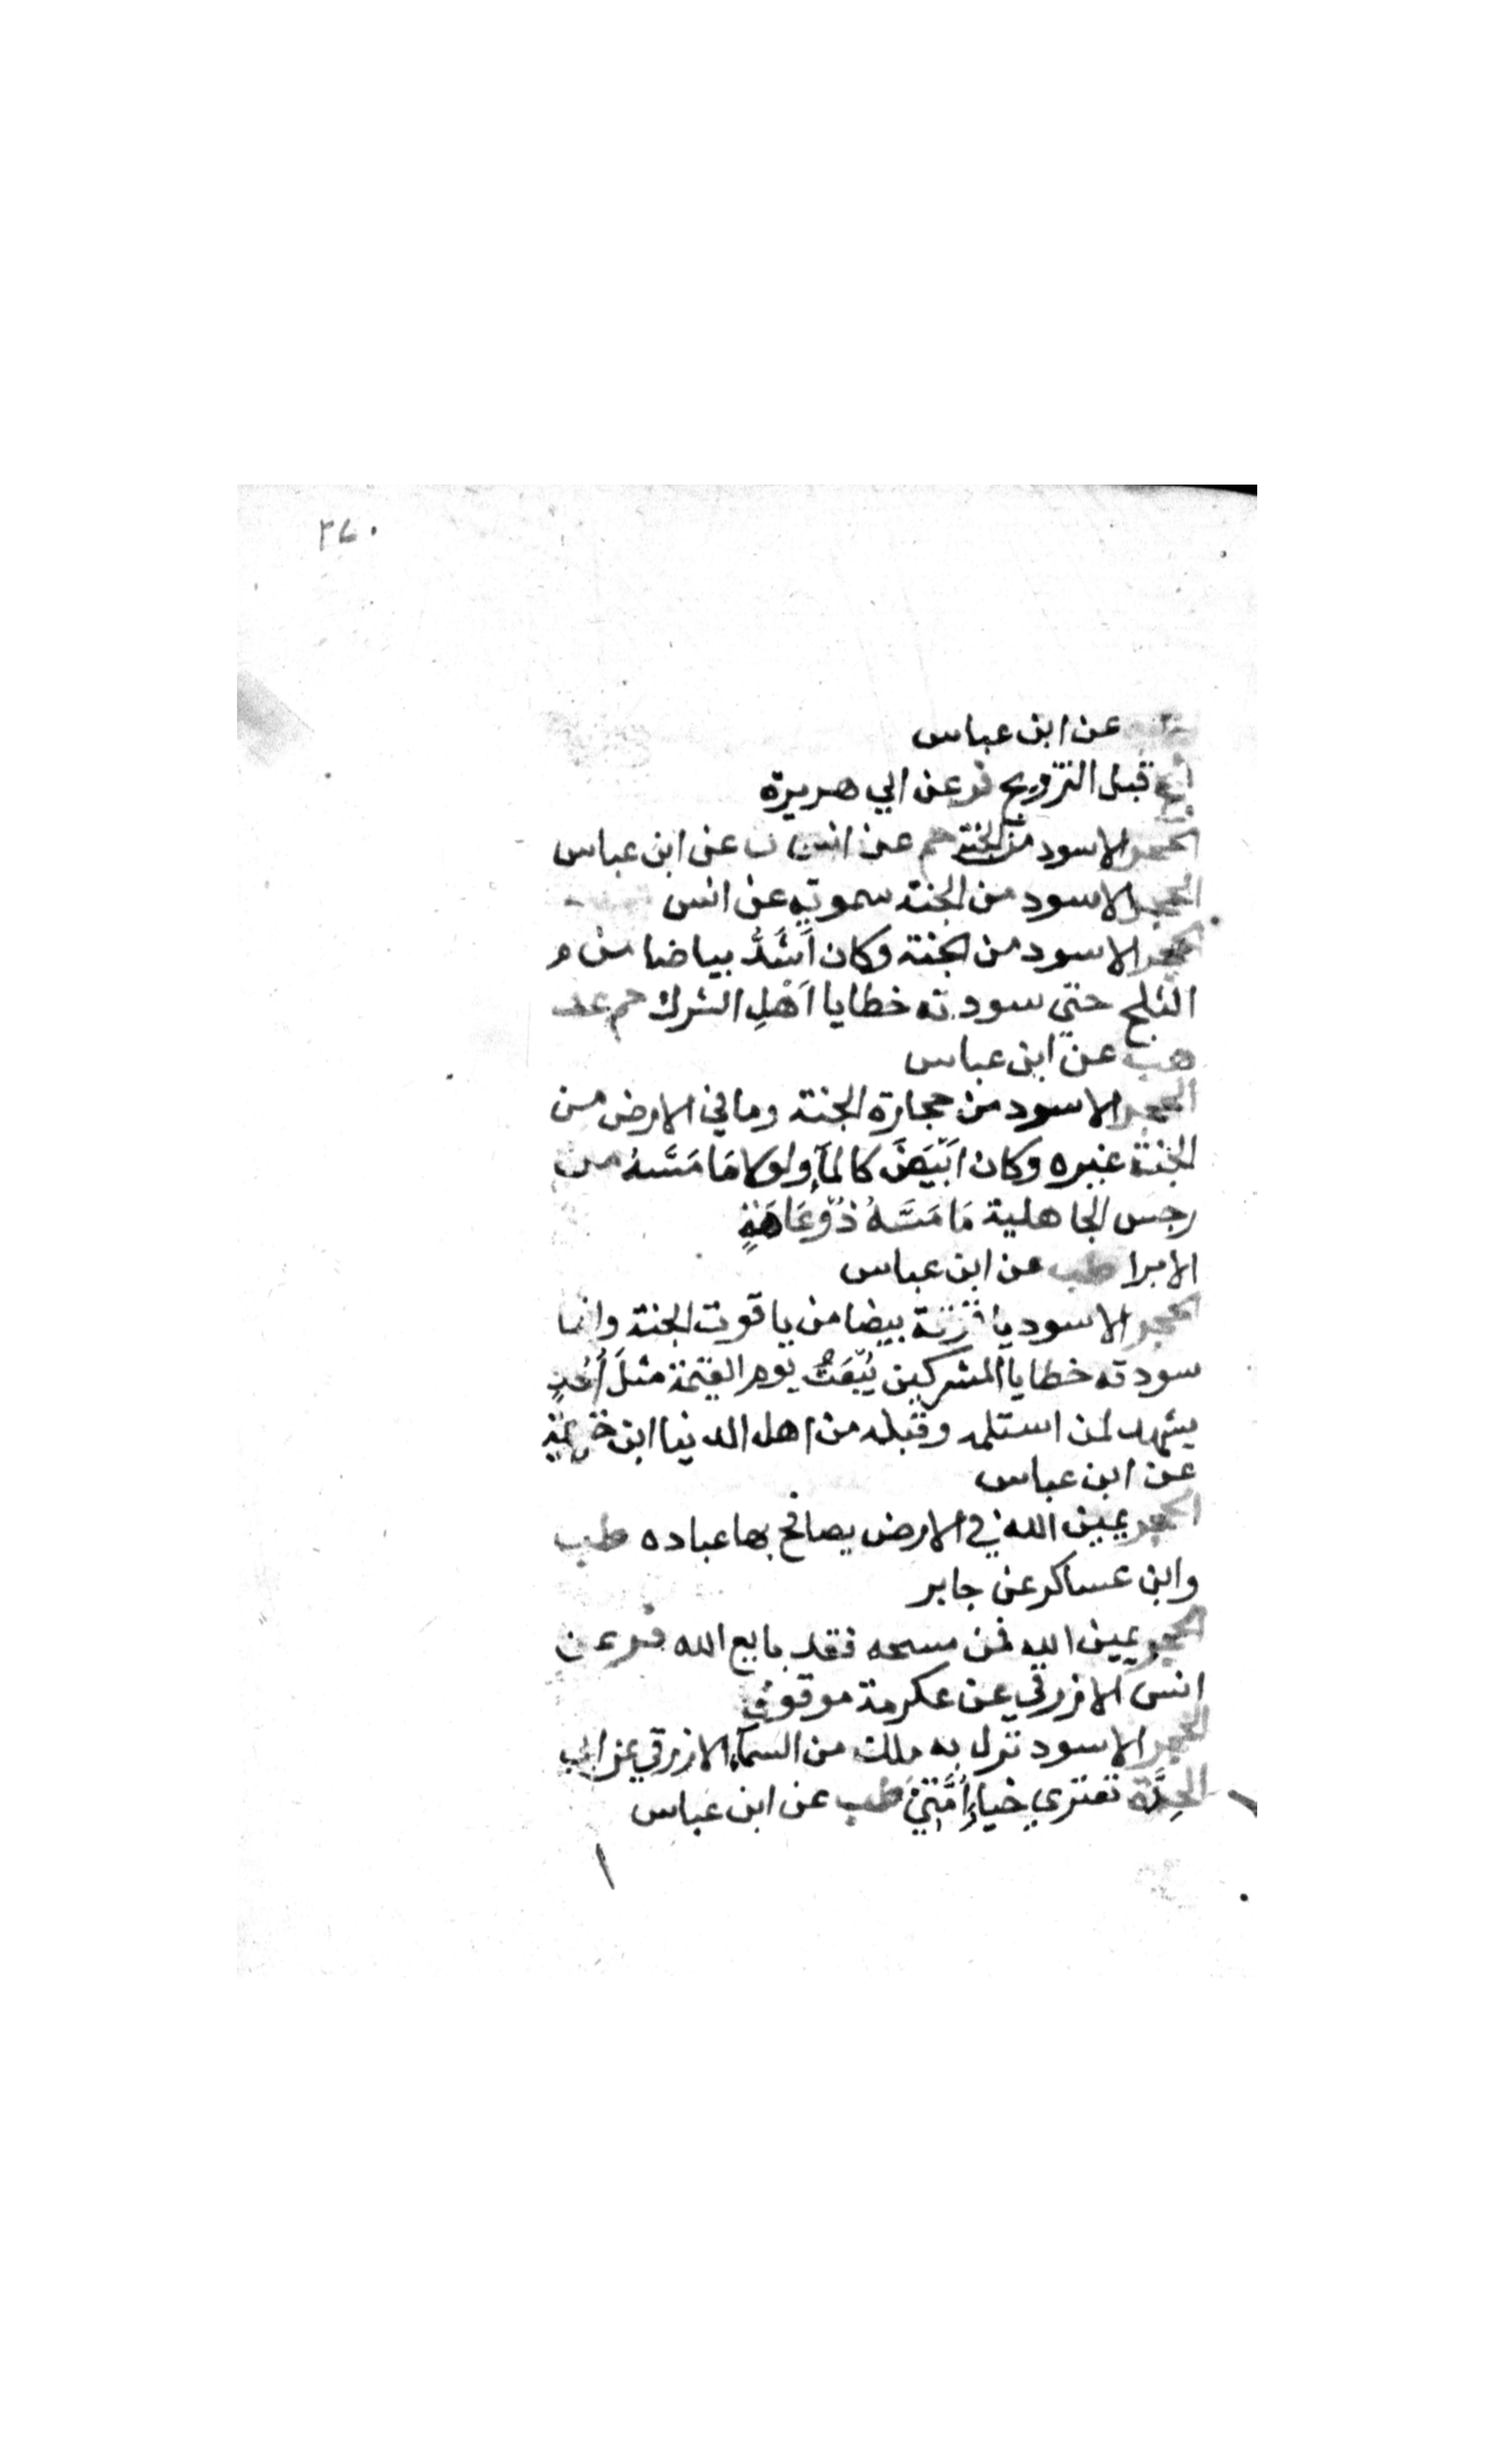 ٢٧٠
عن ابن عباس
الحج قبل التزويج فر عن ابي هريرة
الحجر الاسود من الجنة حم عن انس ن عن ابن عباس
الحجر الاسود من الجنة سمويه عن انس
الحجر الاسود من الجنة وكان أَشَدُّ بياضا من
الثلج حتي سودته خطايا اَهْلِ الشرك حم عد
هب عن ابن عباس
الحجر الاسود من حجارة الجنة وما في الارض من
الجنة غيره وكان اَبْيَضَ كالمآء ولولا مَا مَسَّهُ من
رجس الجاهلية مَا مَسَّهُ ذُو عَاهَةٍ
الا برا طب عن ابن عباس
الحجر الاسود ياقوتة بيضا من ياقوت الجنة وانما
سودته خطايا المشركين يُبْعَثُ يوم القيمة مثلَ أُحُدٍ
يشهد لمن استلمه وقبله من اهل الدنيا ابن خزيمة
عن ابن عباس
الحجر يمين الله في الارض يصافح بها عباده طب
وابن عساكر عن جابر
الحجر يمين الله فمن مسحه فقد بايع الله فر عن
انس الازرقي عن عكرمة موقوف
الحجر الاسود نزل به ملك من السمآء الازرقي عن ابي
الحِدَّة تعتري خياءِ أُمَّتِيْ طب عن ابن عباس